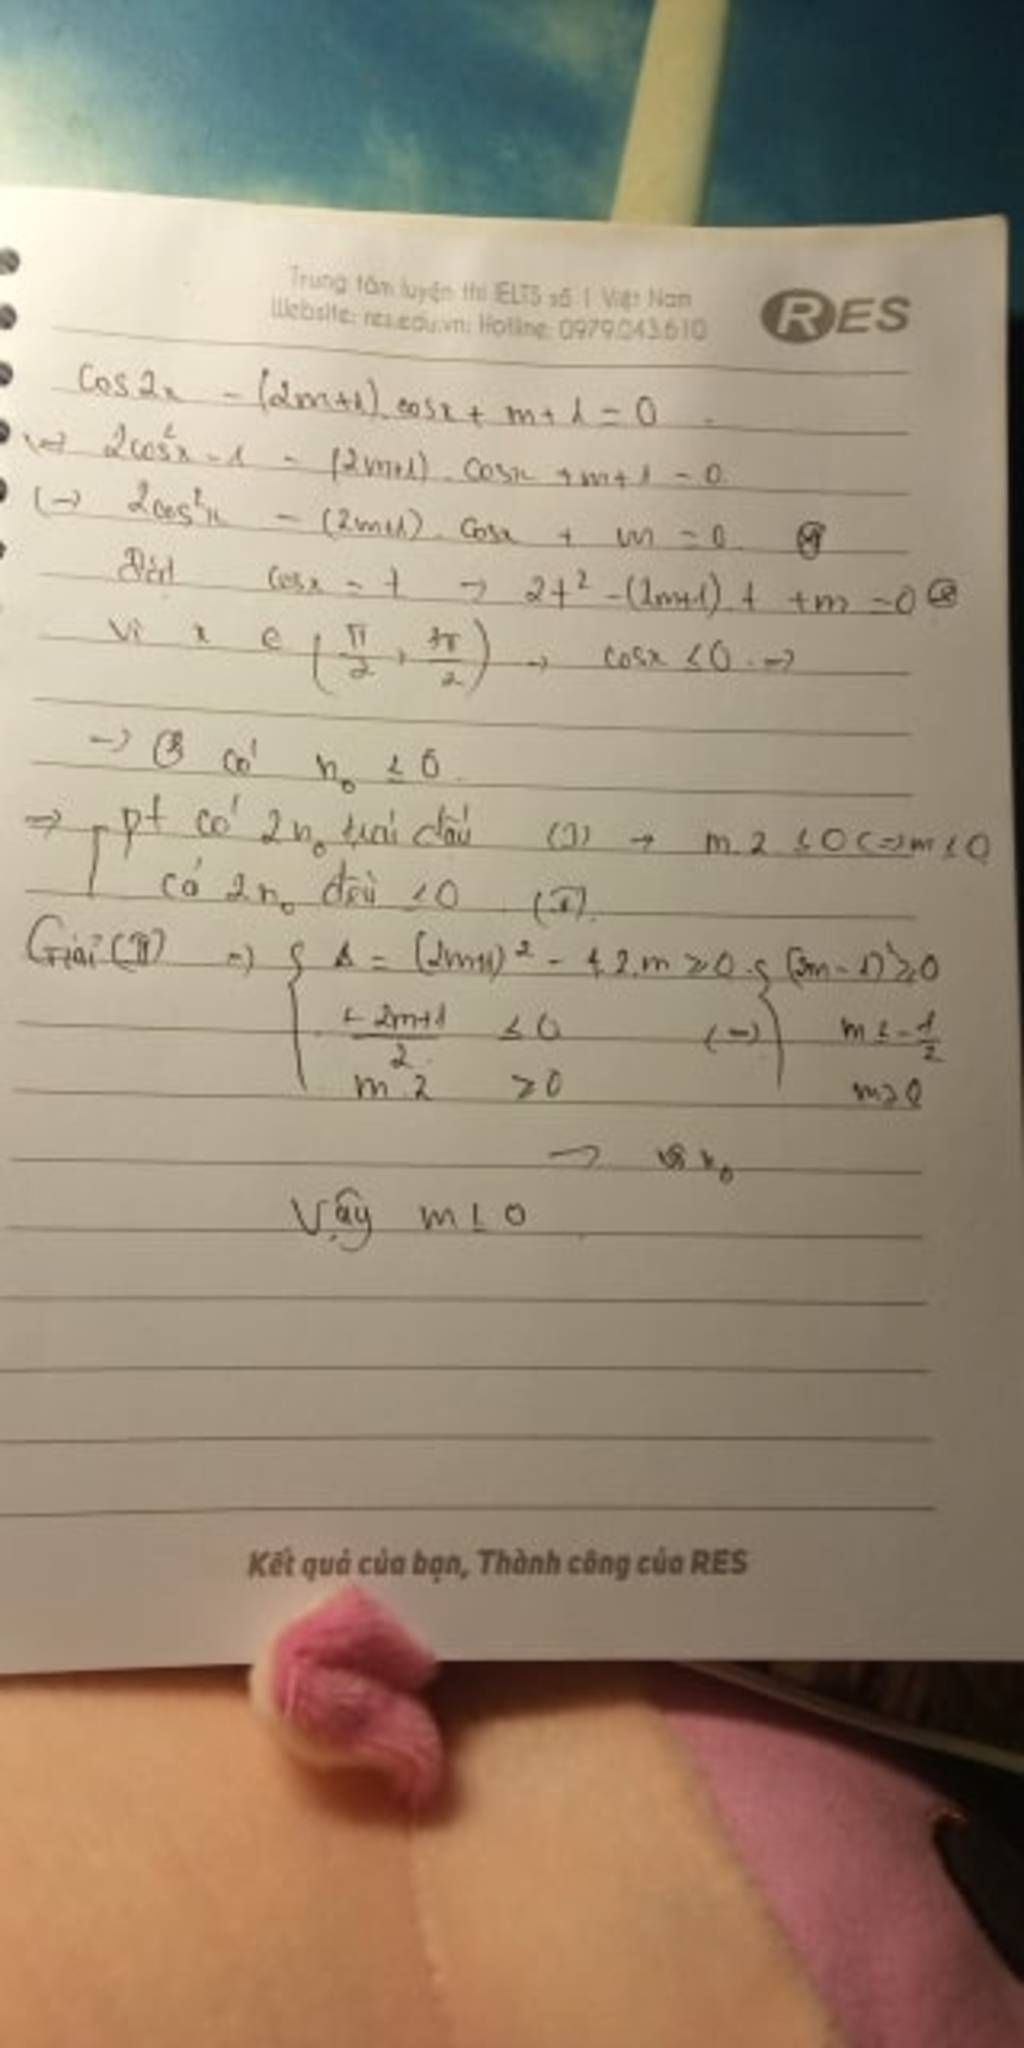 Trung tâm luyện thi IELTS số 1 Việt Nam
Website: res.edu.vn; Hotline: 0979.043.610
RES
cos2x - (2m+1) cosx + m + 1 = 0
<=> 2cos²x - 1 - (2m+1). cosx + m + 1 = 0
(-> 2cos²x - (2m+1). cosx + m = 0
Đặt cosx = t -> 2t² - (2m+1) t + m = 0 ②
Vì x ∈ (π/2, 3π/2) -> cosx ≤ 0 ->
-> ② có n₀ ≤ 0
=> pt có 2n₀ trái dấu (I) -> m.2 ≤ 0 <=> m ≤ 0
có 2n₀ đều ≤ 0 (II).
Giải (II) => { Δ = (2m+1)² - 4.2.m ≥ 0 { (2m-1)² ≥ 0
2m+1/2 ≤ 0 (=) m ≤ -1/2
m.2 > 0 m > 0
-> n₀
Vậy m ≤ 0
Kết quả của bạn, Thành công của RES